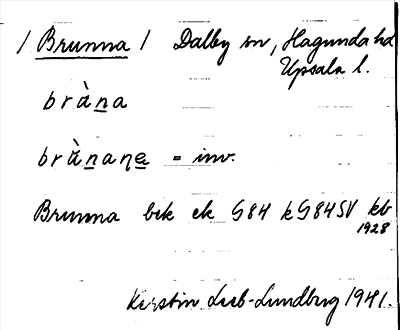 / Brunna / Dalby sn, Hagunda hd
Upsala l.
bràna
brànaŋa = inv.
Brunna bek ek G84 kG84SV kb
1928
Kerstin Leeb-Lundberg 1941.